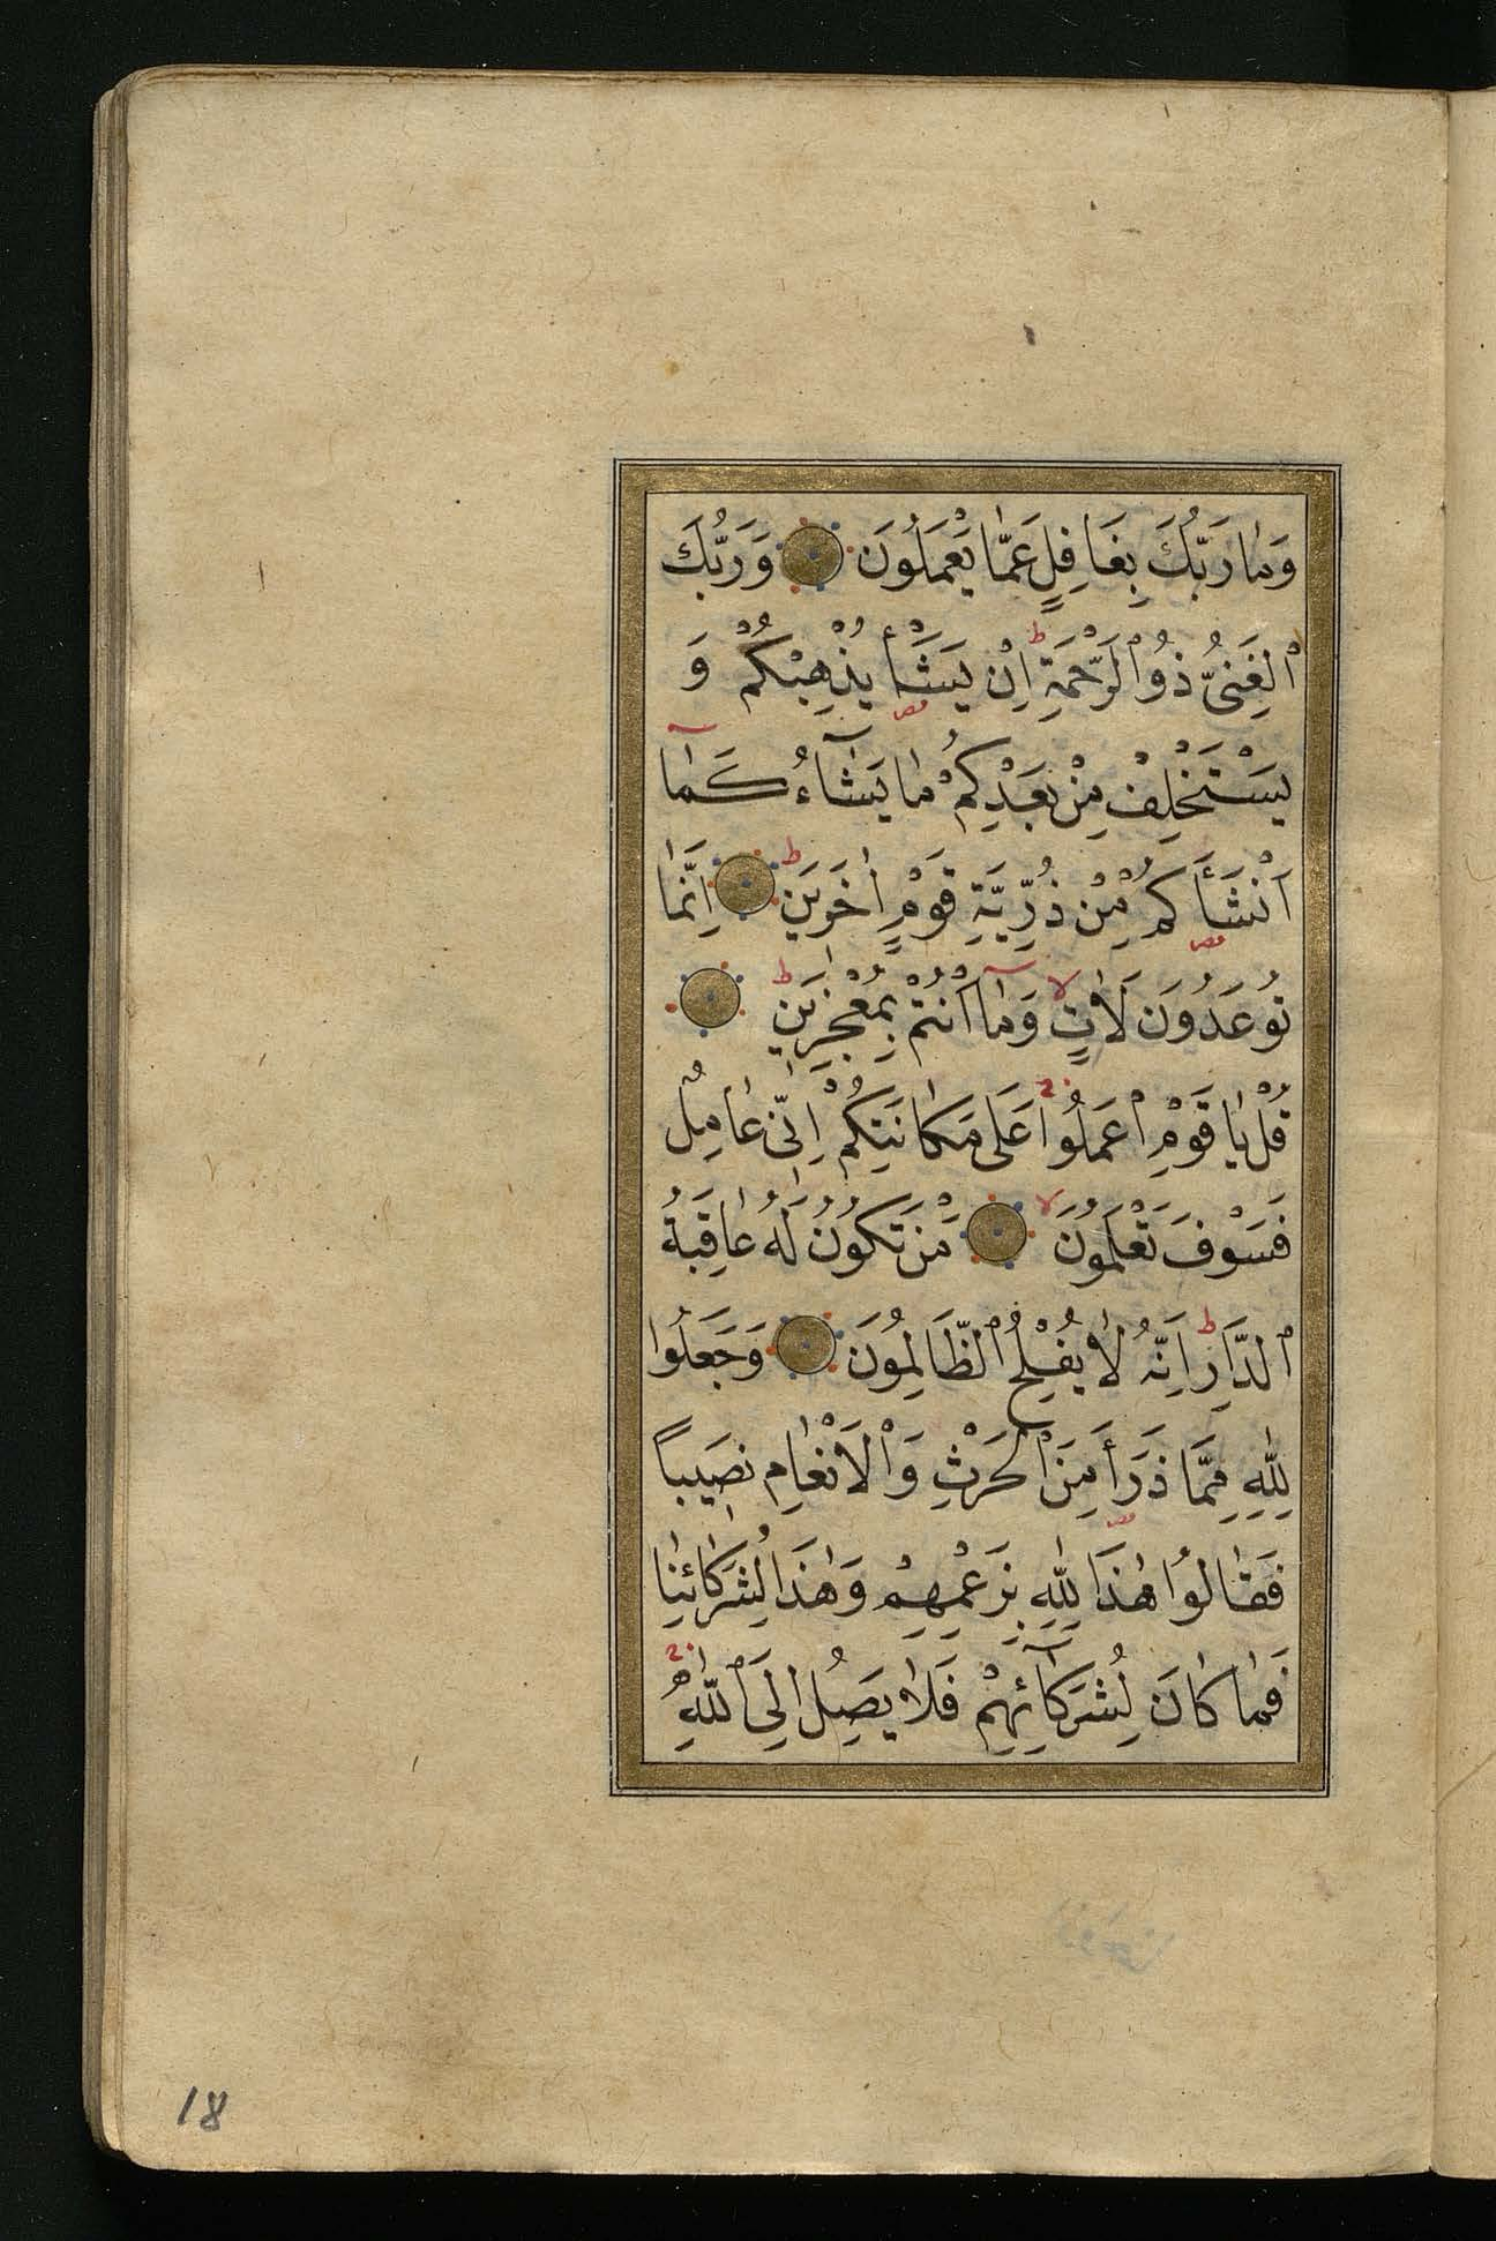 وَمَا رَبُّكَ بِغَافِلٍ عَمَّا يَعْمَلُونَ وَرَبُّكَ
ٱلْغَنِىُّ ذُوٱلرَّحْمَةِ ط اِنْ يَشَأْ يُذْهِبْكُمْ وَ
يَسْتَخْلِفْ مِنْ بَعْدِكُمْ مَا يَشَآءُ كَمَآ
اَنْشَأَكُمْ مِنْ ذُرِّيَّةِ قَوْمٍ اٰخَرِينَ ط اِنَّمَا
تُوعَدُونَ لَاٰتٍ لا وَمَآ اَنْتُمْ بِمُعْجِزِينَ ط
قُلْ يَا قَوْمِ ٱعْمَلُوا عَلَى مَكَانَتِكُمْ اِنِّى عَامِلٌ
فَسَوْفَ تَعْلَمُونَ لا مَنْ تَكُونُ لَهُ عَاقِبَةُ
ٱلدَّارِ ط اِنَّهُ لَا يُفْلِحُ ٱلظَّالِمُونَ وَجَعَلُوا
لِلّٰهِ مِمَّا ذَرَأَ مِنَ ٱلْحَرْثِ وَٱلْاَنْعَامِ نَصِيبًا
فَقَالُوا هٰذَا لِلّٰهِ بِزَعْمِهِمْ وَهٰذَا لِشُرَكَائِنَا
فَمَا كَانَ لِشُرَكَآئِهِمْ فَلَا يَصِلُ اِلَى ٱللّٰهِ
18